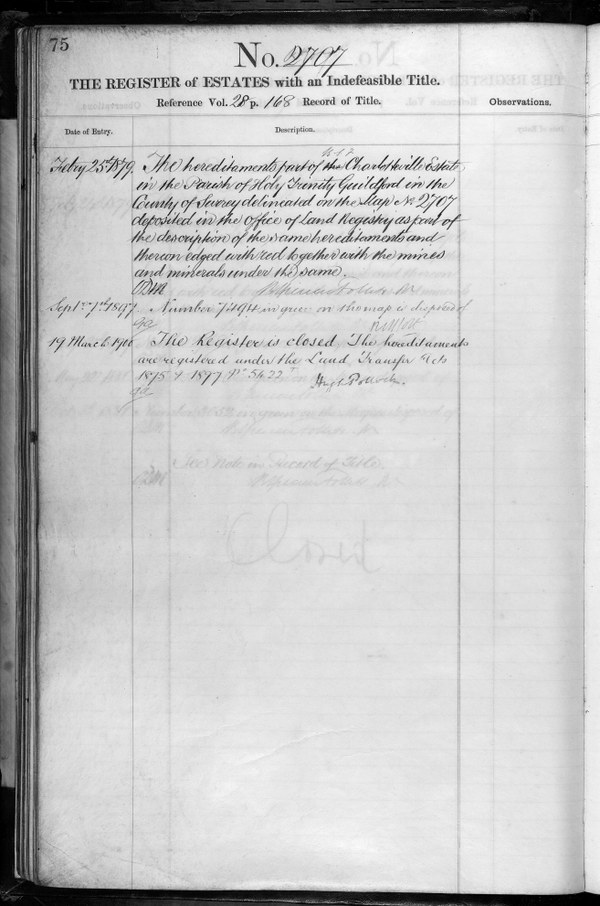 75
No. 2707
THE REGISTER of ESTATES with an Indefeasible Title.
Reference Vol. 28 p. 168 Record of Title.
Observations.
Date of Entry.
Description.
Feby 25th 1879. The hereditaments part of the Charlotteville Estate
in the Parish of Holy Trinity Guildford in the
County of Surrey delineated on the Map No 2707
deposited in the Office of Land Registry as part of
the description of the same hereditaments and
thereon edged with red together with the mines
and minerals under the same.
Sept 7th 1897. Number 7494 in green on the map is disposed of
19 March 1900 The Register is closed. The hereditaments
are registered under the Land Transfer Acts
1875 & 1897 No 5422
Hugh Pollock.
See Note in Record of Title.
Closed